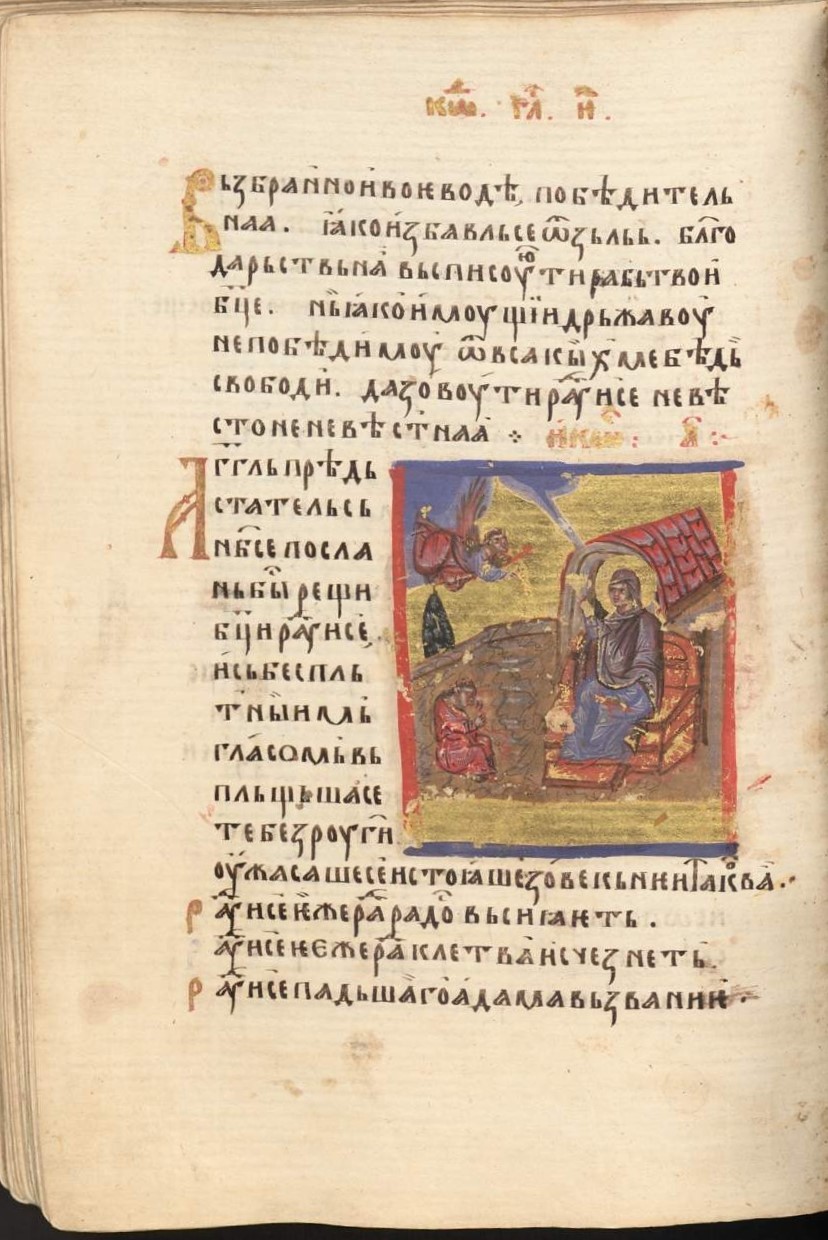 кѡⷣ. гла. и҃.
Вьзбран'нои воѥводѣ, побѣдитель
наа. ꙗко избавльсе ѿ зьль. блго
дарьствьна вьсписоуѥⷮ ти раби твои
бц҃е. нь ꙗко имоущїи дрьжавоу
непобѣдимоу ѿ всакых ме бѣдь
свободи. да зовоу ти раⷣуисе невѣ
сто неневѣстнаа ⁘ икоⷭ : а҃ :
Агг҃ль прѣдь
статель сь
нб҃се посла
нь бы рещи
бц҃и раⷣуисе.
и сь беспль
тныим ь
гласомь вь
пльщьша се
тебе зре ги
оужасаше се и стоꙗше зовеи къ ни такова.
Раⷣуисе ѥюже радо вьсиꙗѥть.
аⷣуисе ѥюже клетва исчезнеть.
Раⷣуисе падьшаго адама вьзваниѥ.